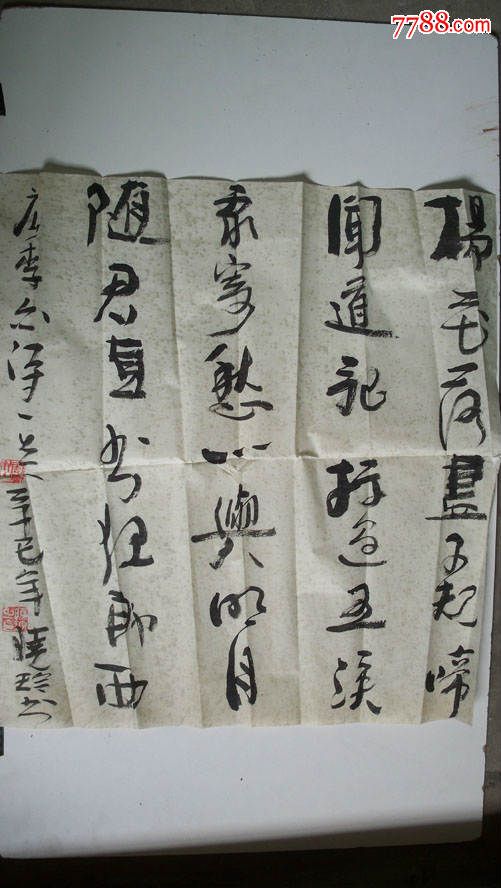 7788.com
楊花落盡子規啼
聞道龍標過五溪
我寄愁心與明月
隨君直到夜郎西
唐李白詩一首 辛巳年 曉玲书